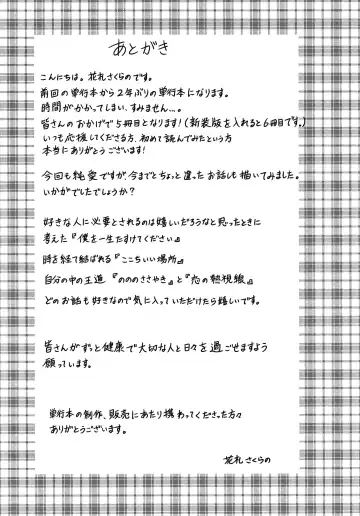 あとがき
こんにちは。花札さくらのです。
前回の単行本から2年ぶりの単行本になります。
時間がかかってしまい、すみません…。
皆さんのおかげで5冊目となります!(新装版を入れると6冊目です。)
いつも応援してくださる方、初めて読んでみたという方
本当にありがとうございます!
今回も純愛ですが、今までとちょっと違ったお話も描いてみました。
いかがでしたでしょうか?
好きな人に必要とされるのは嬉しいだろうなと思ったときに
考えた『僕を一生たすけてください』
時を経て結ばれる『ここちいい場所』
自分の中の王道『のののささやき』と『恋の熱視線』
どのお話も好きなので気に入っていただけたら嬉しいです。
皆さんがずっと健康で大切な人と日々を過ごせますよう
願っています。
単行本の制作、販売にあたり携わってくださった方々
ありがとうございます。
花札さくらの